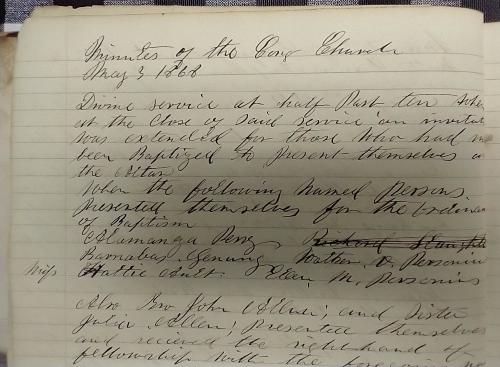 Minutes of the Cong Church
May 3 1868
Divine service at half Past ten
at the close of said service an
was extended for those who had
been Baptized to present themselves
the altar
When the following named Persons
Presented themselves for the
of Baptism
Alamanza Perry Richard
Barnabas Genung Walter D.
Miss Hattie Ault. Ellen M. Personius
Also Bro John Allen; and Sister
Julia Allen; Presented themselves
and recieved the right hand of
fellowship with the foregoing